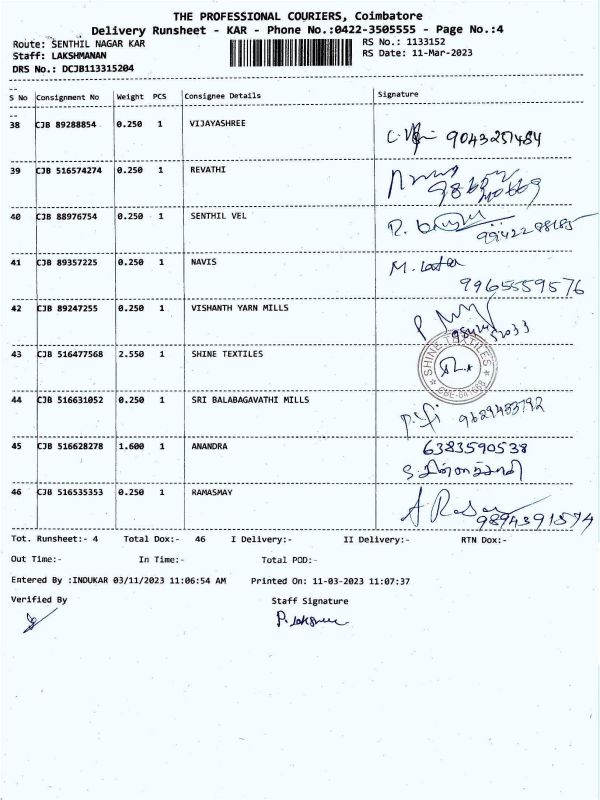 THE PROFESSIONAL COURIERS, Coimbatore
Delivery Runsheet - KAR - Phone No.:0422-3505555 - Page No.:4
Route: SENTHIL NAGAR KAR RS No.: 1133152
Staff: LAKSHMANAN RS Date: 11-Mar-2023
DRS No.: DCJB113315204
S No Consignment No Weight PCS Consignee Details Signature
38 CJB 89288854 0.250 1 VIJAYASHREE 9043251484
39 CJB 516574274 0.250 1 REVATHI
40 CJB 88976754 0.250 1 SENTHIL VEL
41 CJB 89357225 0.250 1 NAVIS M. Latha
9965559576
42 CJB 89247255 0.250 1 VISHANTH YARN MILLS
43 CJB 516477568 2.550 1 SHINE TEXTILES SHINE TEXTILES
44 CJB 516631052 0.250 1 SRI BALABAGAVATHI MILLS
45 CJB 516628278 1.600 1 ANANDRA 6383590538
46 CJB 516535353 0.250 1 RAMASMAY 9894391574
Tot. Runsheet:- 4 Total Dox:- 46 I Delivery:- II Delivery:- RTN Dox:-
Out Time:- In Time:- Total POD:-
Entered By :INDUKAR 03/11/2023 11:06:54 AM Printed On: 11-03-2023 11:07:37
Verified By Staff Signature